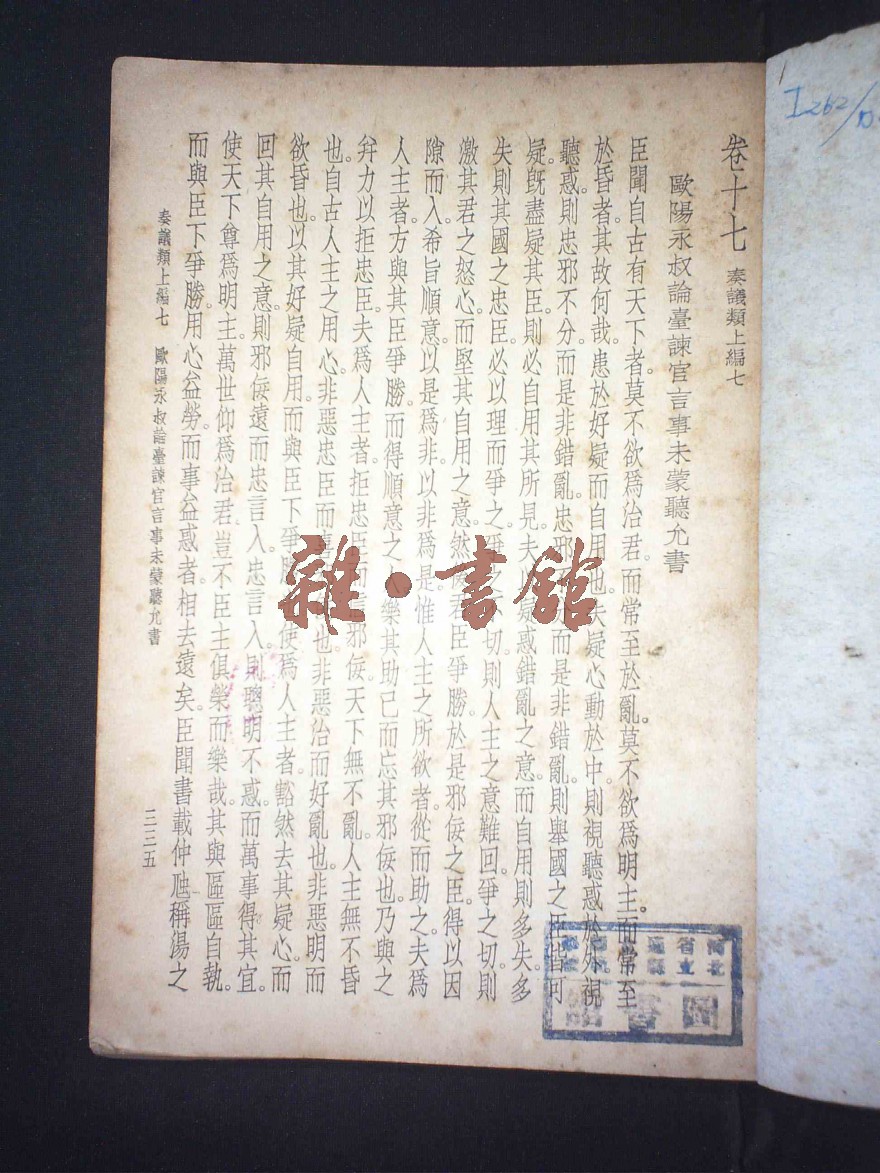 I262/
卷十七 奏議類上編七
歐陽永叔論臺諫官言事未蒙聽允書
臣聞自古有天下者。莫不欲爲治君。而常至於亂。莫不欲爲明主。而常至
於昏者。其故何哉。患於好疑而自用也。夫疑心動於中。則視聽惑於外。視
聽惑。則忠邪不分。而是非錯亂。忠邪不分而是非錯亂。則舉國之臣皆可
疑。旣盡疑其臣。則必自用其所見。夫以疑惑錯亂之意。而自用則多失。多
失則其國之忠臣。必以理而爭之。爭之不切。則人主之意難回。爭之切。則
激其君之怒心。而堅其自用之意。然後君臣爭勝。於是邪佞之臣。得以因
隙而入。希旨順意。以是爲非。以非爲是。惟人主之所欲者。從而助之。夫爲
人主者。方與其臣爭勝。而得順意之人。樂其助己。而忘其邪佞也。乃與之
幷力以拒忠臣。夫爲人主者。拒忠臣而信邪佞。天下無不亂。人主無不昏
也。自古人主之用心。非惡忠臣而喜也。非惡治而好亂也。非惡明而
欲昏也。以其好疑自用。而與臣下爭勝使爲人主者。豁然去其疑心。而
回其自用之意。則邪佞遠而忠言入。忠言入。則聰明不惑。而萬事得其宜。
使天下尊爲明主。萬世仰爲治君。豈不臣主俱榮而樂哉。其與區區自執。
而與臣下爭勝。用心益勞。而事益惑者。相去遠矣。臣聞書載仲虺稱湯之
奏議類上編七 歐陽永叔論臺諫官言事未蒙聽允書
三三五
雜·書館
河北省立
圖書館